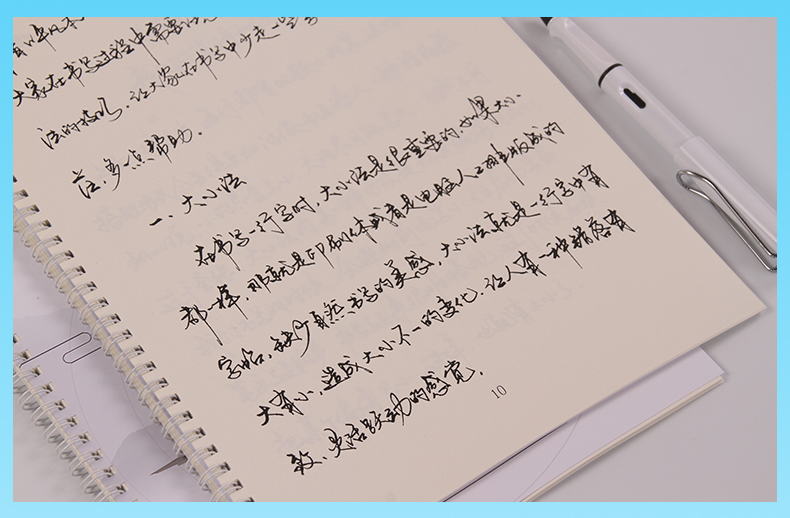 大家在书写过程中需要
法的技巧，让大家在书写中少走一些
路，多一点帮助。
一、大小法
在书写一行字时，大小法是很重要的，如果大小
都一样，那就是印刷体或者是电脑人工排版成的
字帖，缺少自然书写的美感，大小法就是一行字中有
大有小，造成大小不一的变化，让人有一种错落有
致，灵活跃动的感觉。
10